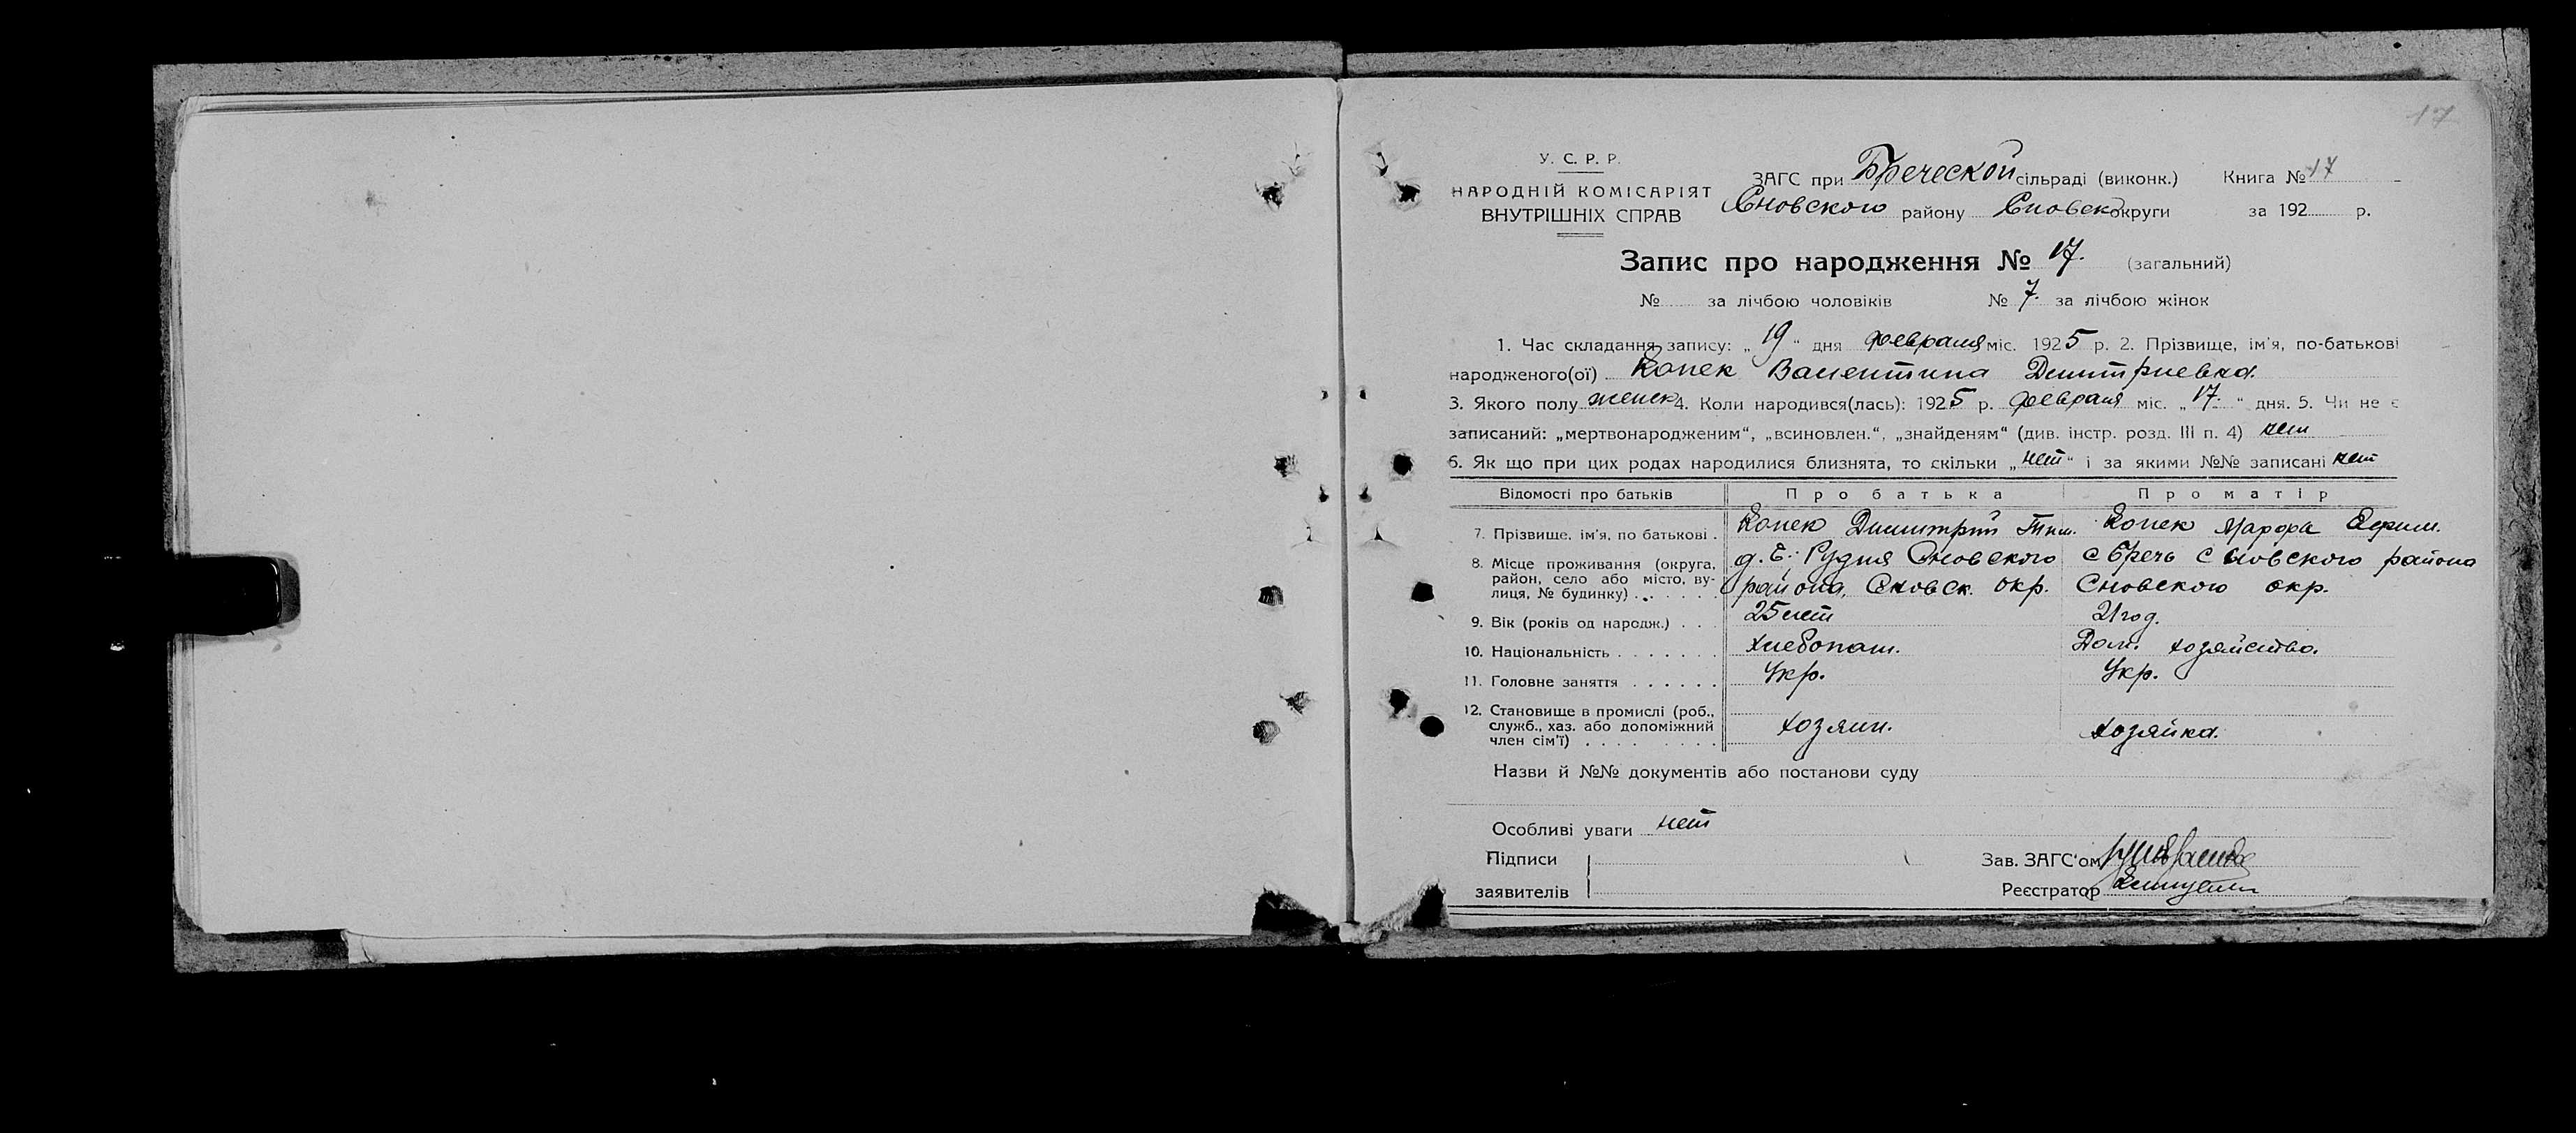 17
У. С. Р. Р.
НАРОДНІЙ КОМІСАРІЯТ
ВНУТРІШНІХ СПРАВ
ЗАГС при Бреческой сільраді (виконк.) Книга № 17
Сновского району Сновск округи за 192 р.
Запис про народження № 17. (загальний)
№ за лічбою чоловіків № 7. за лічбою жінок
1. Час складання запису: „19“ дня февраля міс. 1925 р. 2. Прізвище, ім'я, по-батькові
народженого(ої) Копек Валентина Димитриевна.
3. Якого полу женск 4. Коли народився(лась): 1925 р. февраля міс. „17.“ дня. 5. Чи не є
записаний: „мертвонародженим“, „всиновлен.“, „знайденям“ (див. інстр. розд. III п. 4) нет
6. Як що при цих родах народилися близнята, то скільки „нет“ і за якими №№ записані нет
Відомості про батьків Про батька Про матір
7. Прізвище, ім'я, по батькові . Копек Димитрий Тим. Копек Марфа Ефим.
8. Місце проживання (округа, район, село або місто, вулиця, № будинку) . . . . .
д. Е. Рудня Сновского с Бречь Сновского района
района, Сновск. окр. Сновского окр.
9. Вік (років од народж.) . . . 25 лет 21 год.
10. Національність . . . . . . . Хлебопаш. Дом. хозяйство.
11. Головне заняття . . . . . . Укр. Укр.
12. Становище в промислі (роб.,
служб., хаз. або допоміжний
член сім'ї) . . . . . . . . хозяин. хозяйка.
Назви й №№ документів або постанови суду
Особливі уваги нет
Підписи
заявителів
Зав. ЗАГС'ом
Реєстратор